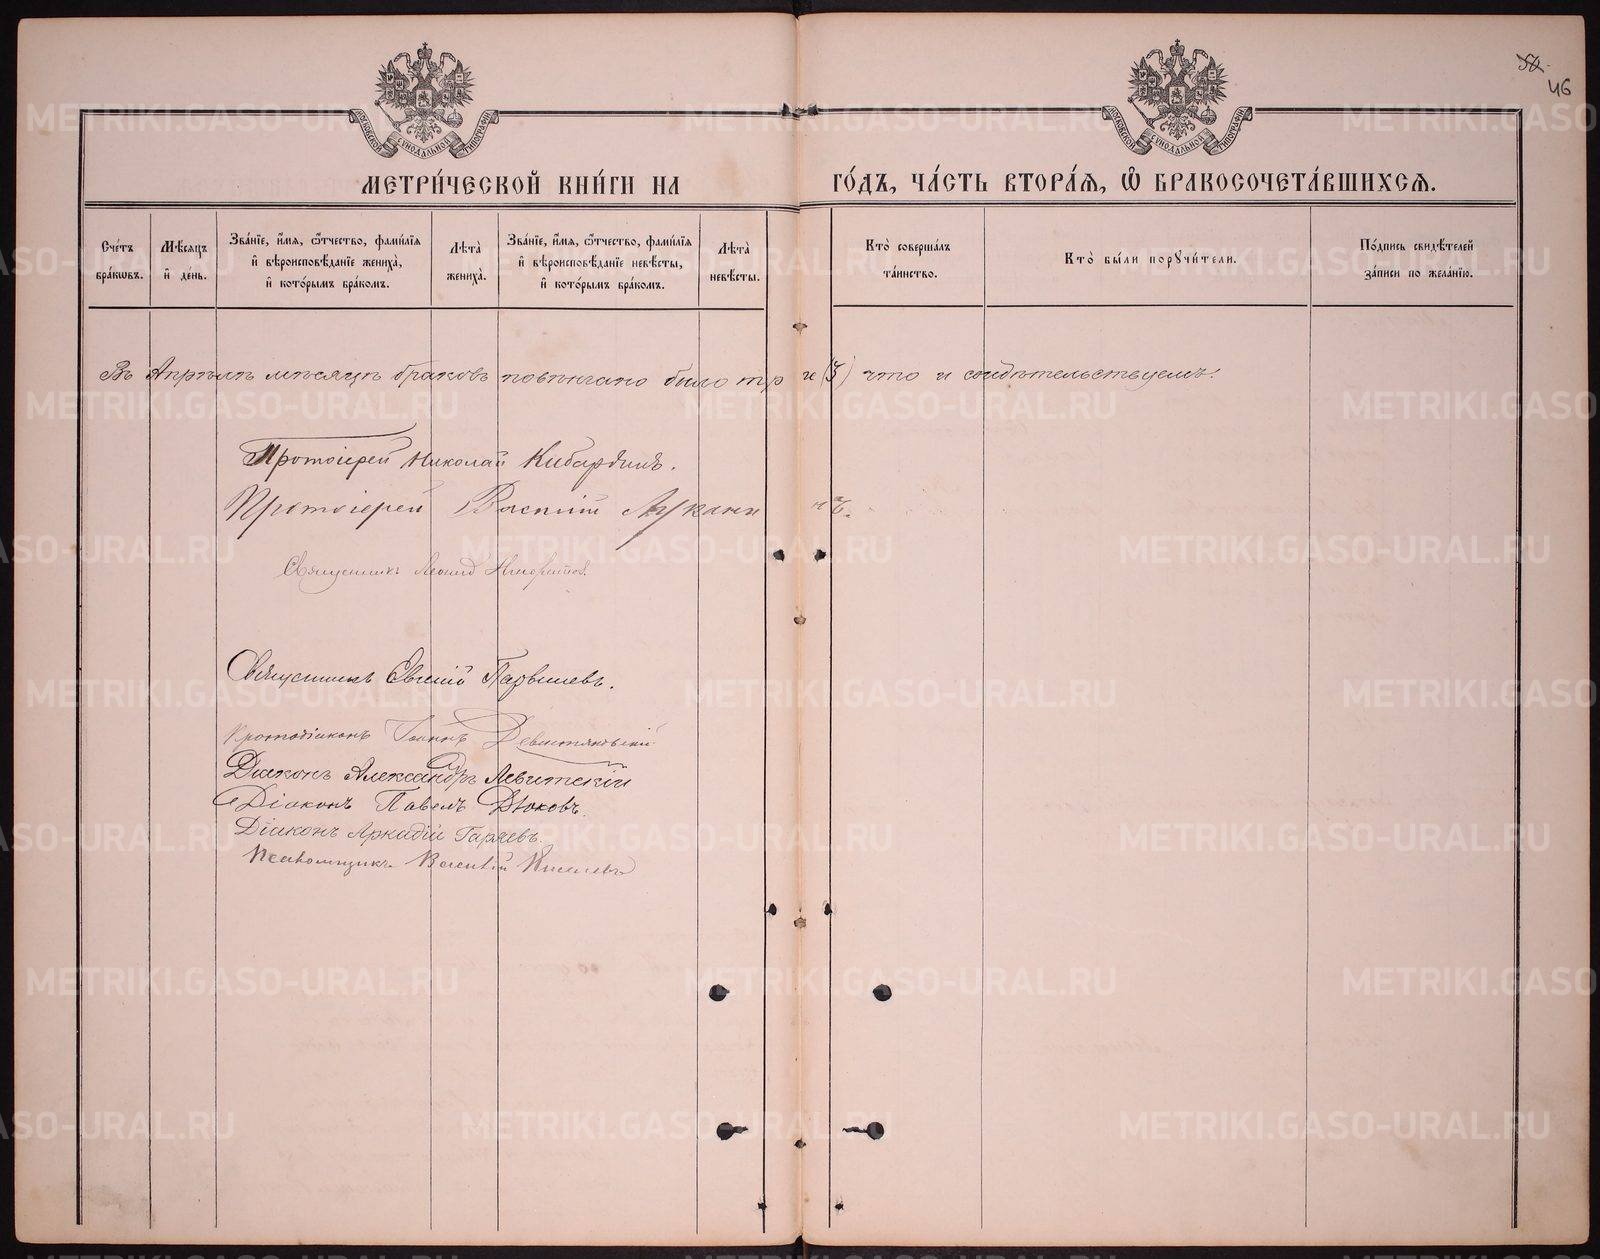 50.
46
МОСКОВСКОЙ СѴНОДАЛЬНОЙ ТИПОГРАФІИ
МОСКОВСКОЙ СѴНОДАЛЬНОЙ ТИПОГРАФІИ
МЕТРИ́ЧЕСКОЙ КНИ́ГИ НА ГО́ДЪ, ЧА́СТЬ ВТОРА́Ѧ, Ѽ БРАКОСОЧЕТА́ВШИХСѦ.
Сче́тъ бра́кѡвъ.
Мѣ́сѧцъ и҆ де́нь.
Зва́нїе, и҆́мѧ, ѻ҆́тчество, фамі́лїѧ и҆ вѣроисповѣ́данїе жениха̀, и҆ кото́рымъ бра́комъ.
Лѣ́та жениха̀.
Зва́нїе, и҆́мѧ, ѻ҆́тчество, фамі́лїѧ и҆ вѣроисповѣ́данїе невѣ́сты, и҆ кото́рымъ бра́комъ.
Лѣ́та невѣ́сты.
Кто̀ соверша́лъ та́инство.
Кто̀ бы́ли порꙋчи́тели.
По́дпись свидѣ́телей за́писи по жела́нїю.
Въ Апрѣлѣ мѣсяцѣ браковъ повѣнчано было три (3) что и свидѣтельствуемъ:
Протоіерей Николай Кибардинъ.
Протоіерей Василій Лукани нъ.
Священникъ Леонид
Священникъ Евгеній Парышевъ.
Протодіаконъ Іоаннъ Девятьяровскій
Діаконъ Александръ Левитскій
Діаконъ Павелъ Дюковъ.
Діаконъ Аркадій Гаряевъ.
Псаломщикъ Киселевъ
METRIKI.GASO-URAL.RU